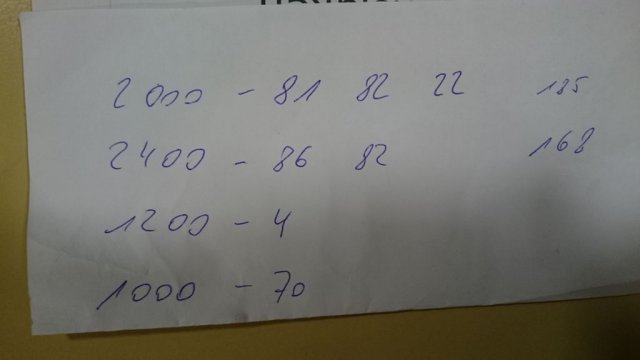 2000 - 81 82 22 185
2400 - 86 82 168
1200 - 4
1000 - 70